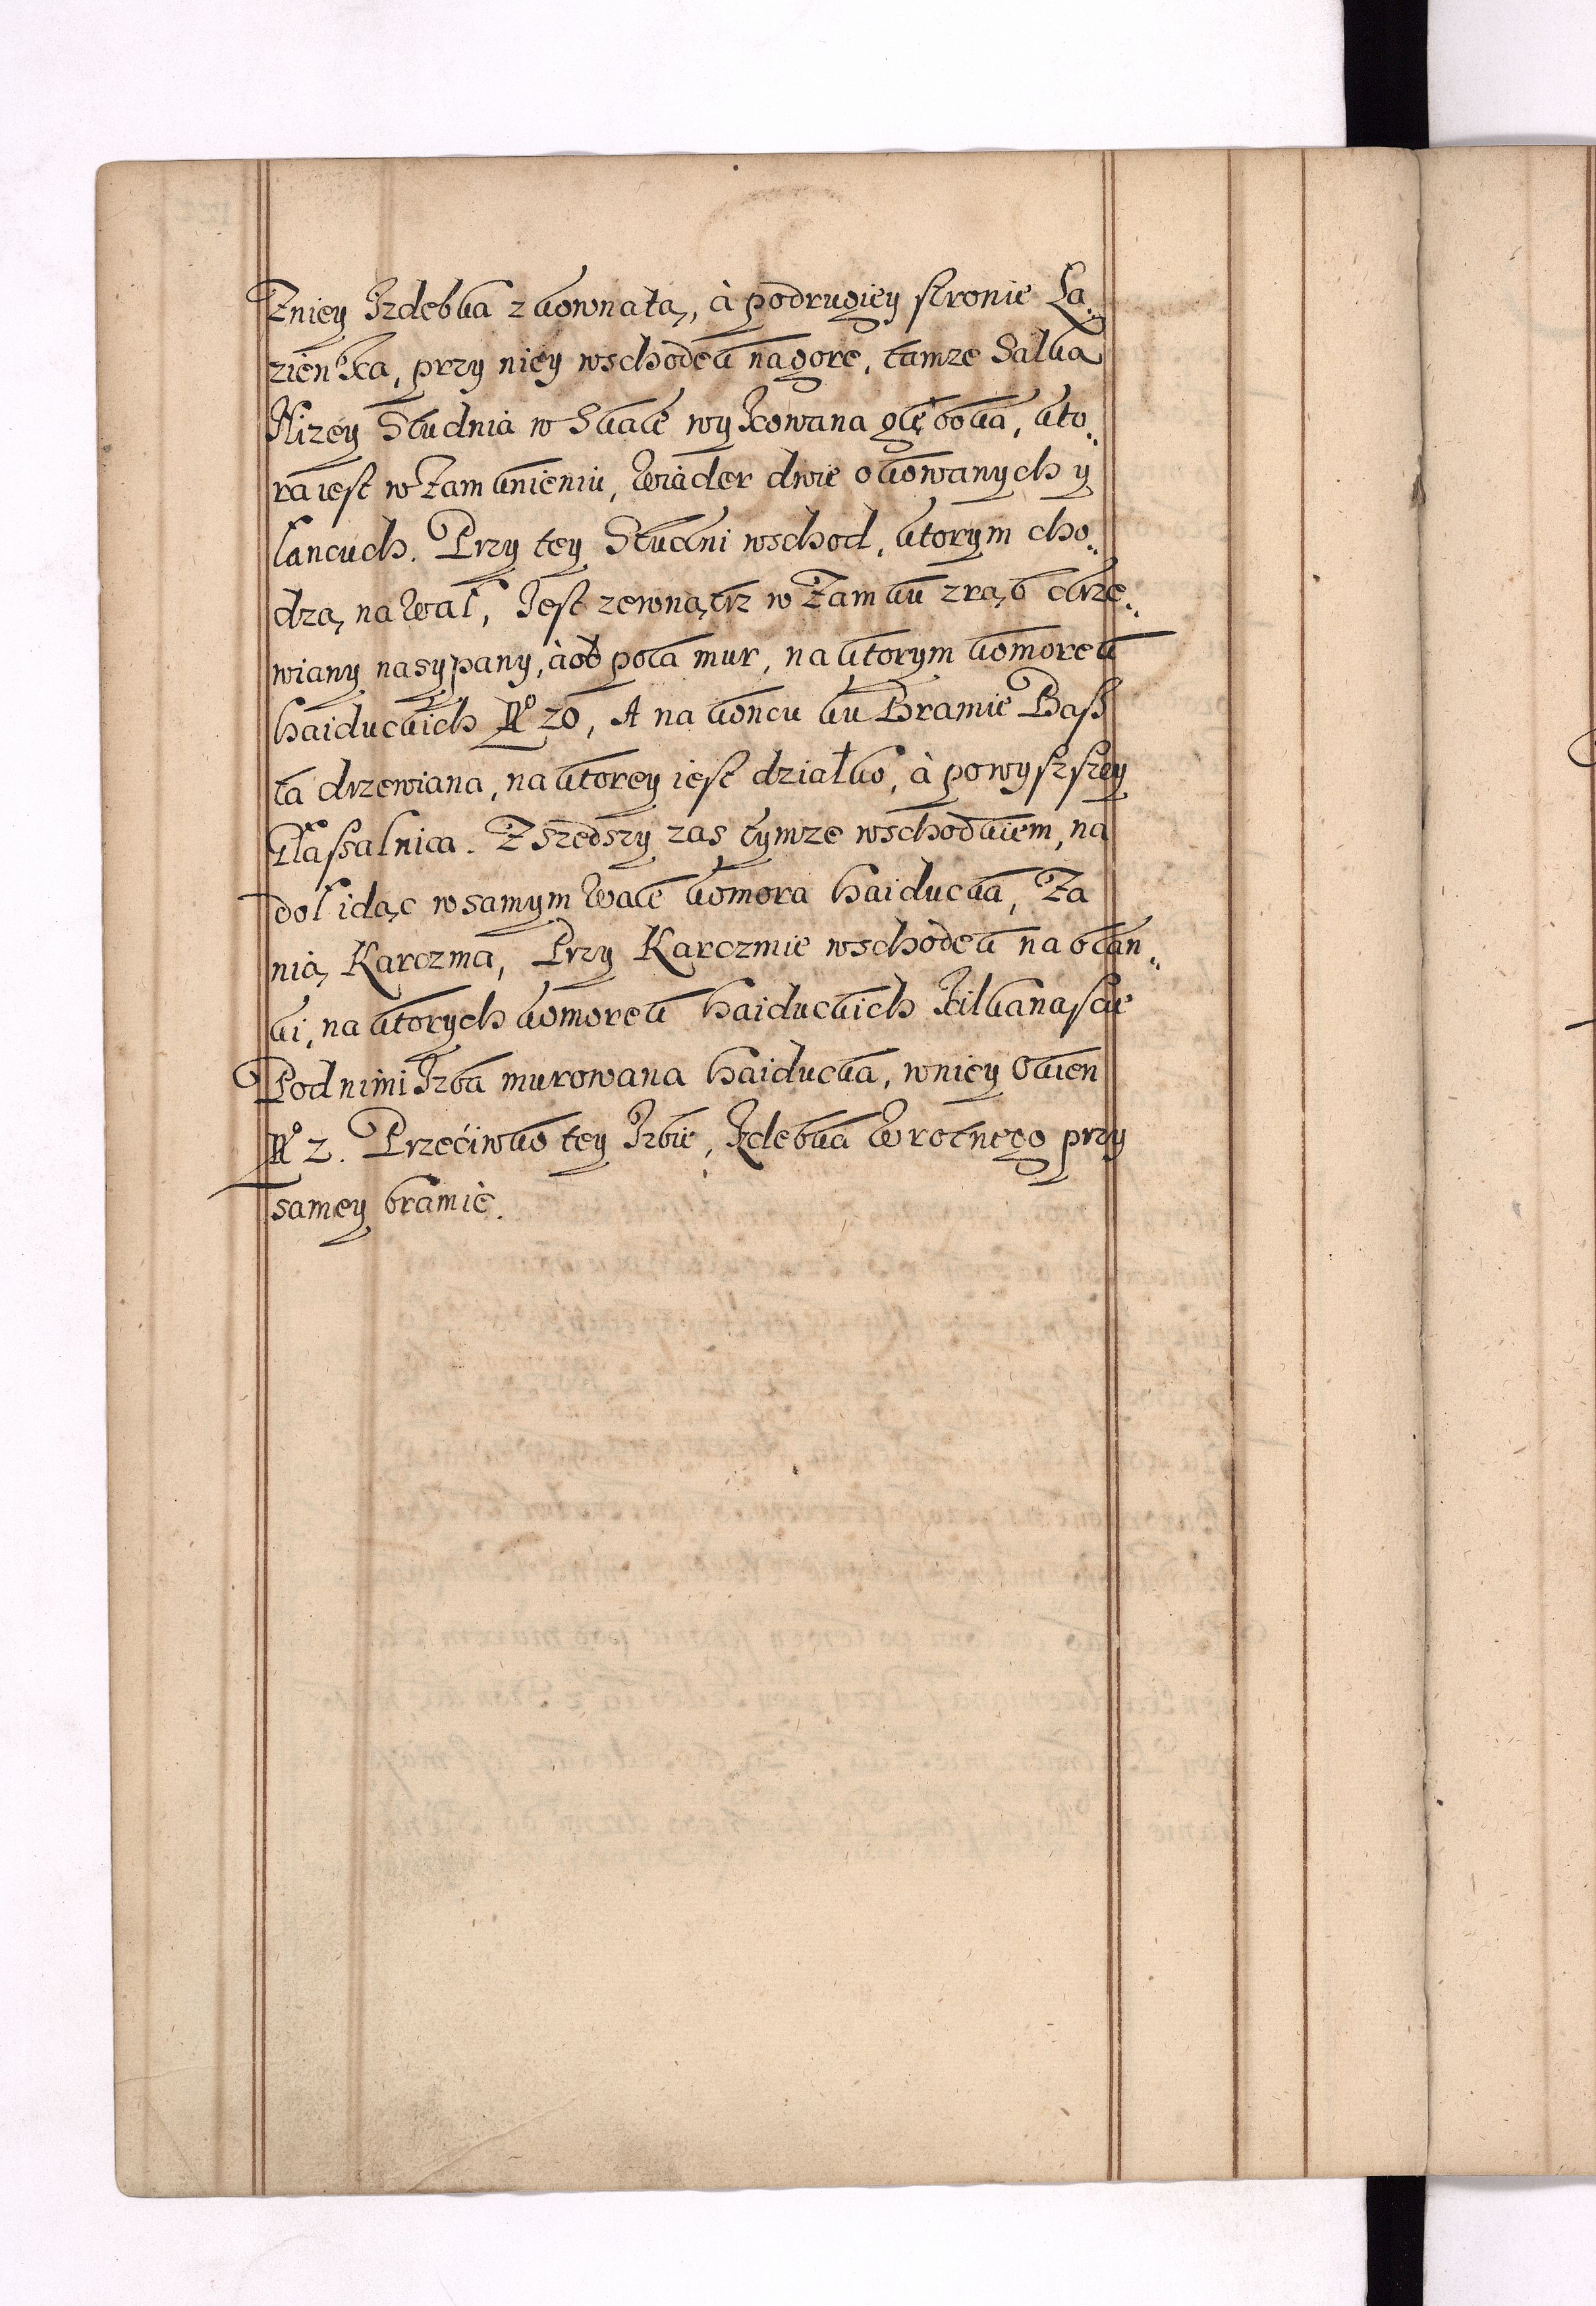 Zniey Izdebka z komnatą, à podrugiey stronie Ła„
zienka, przy niey wschodek nagore, tamze Salka
Nizey Studnia w Skale wykowana głęboka, kto„
ra iest w Zamknieniu, Wiader dwie okowanych y
łancuch. Przy tey Studni wschod, ktorym cho„
dzą na Wał, Iest zewnątrz w Zamku zrąb drze„
wiany nasypany, à od pola mur, na ktorym komorek
haiduckich No 20, A na koncu ku Bramie Basz
ta drzewiana, na ktorey iest działko, à powyszszey
Zszedszy zas tymze wschodkiem, na
doł idąc w samym Wale komora haiducka, Za
nią Karczma, Przy Karczmie wschodek na blan„
ki, na ktorych komorek haiduckich kilkanascie
Pod nimi Izba murowana haiducka, wniey Okien
No 2. Przeciwko tey Izbie, Izdebka Wrotnego przy
samey bramie.